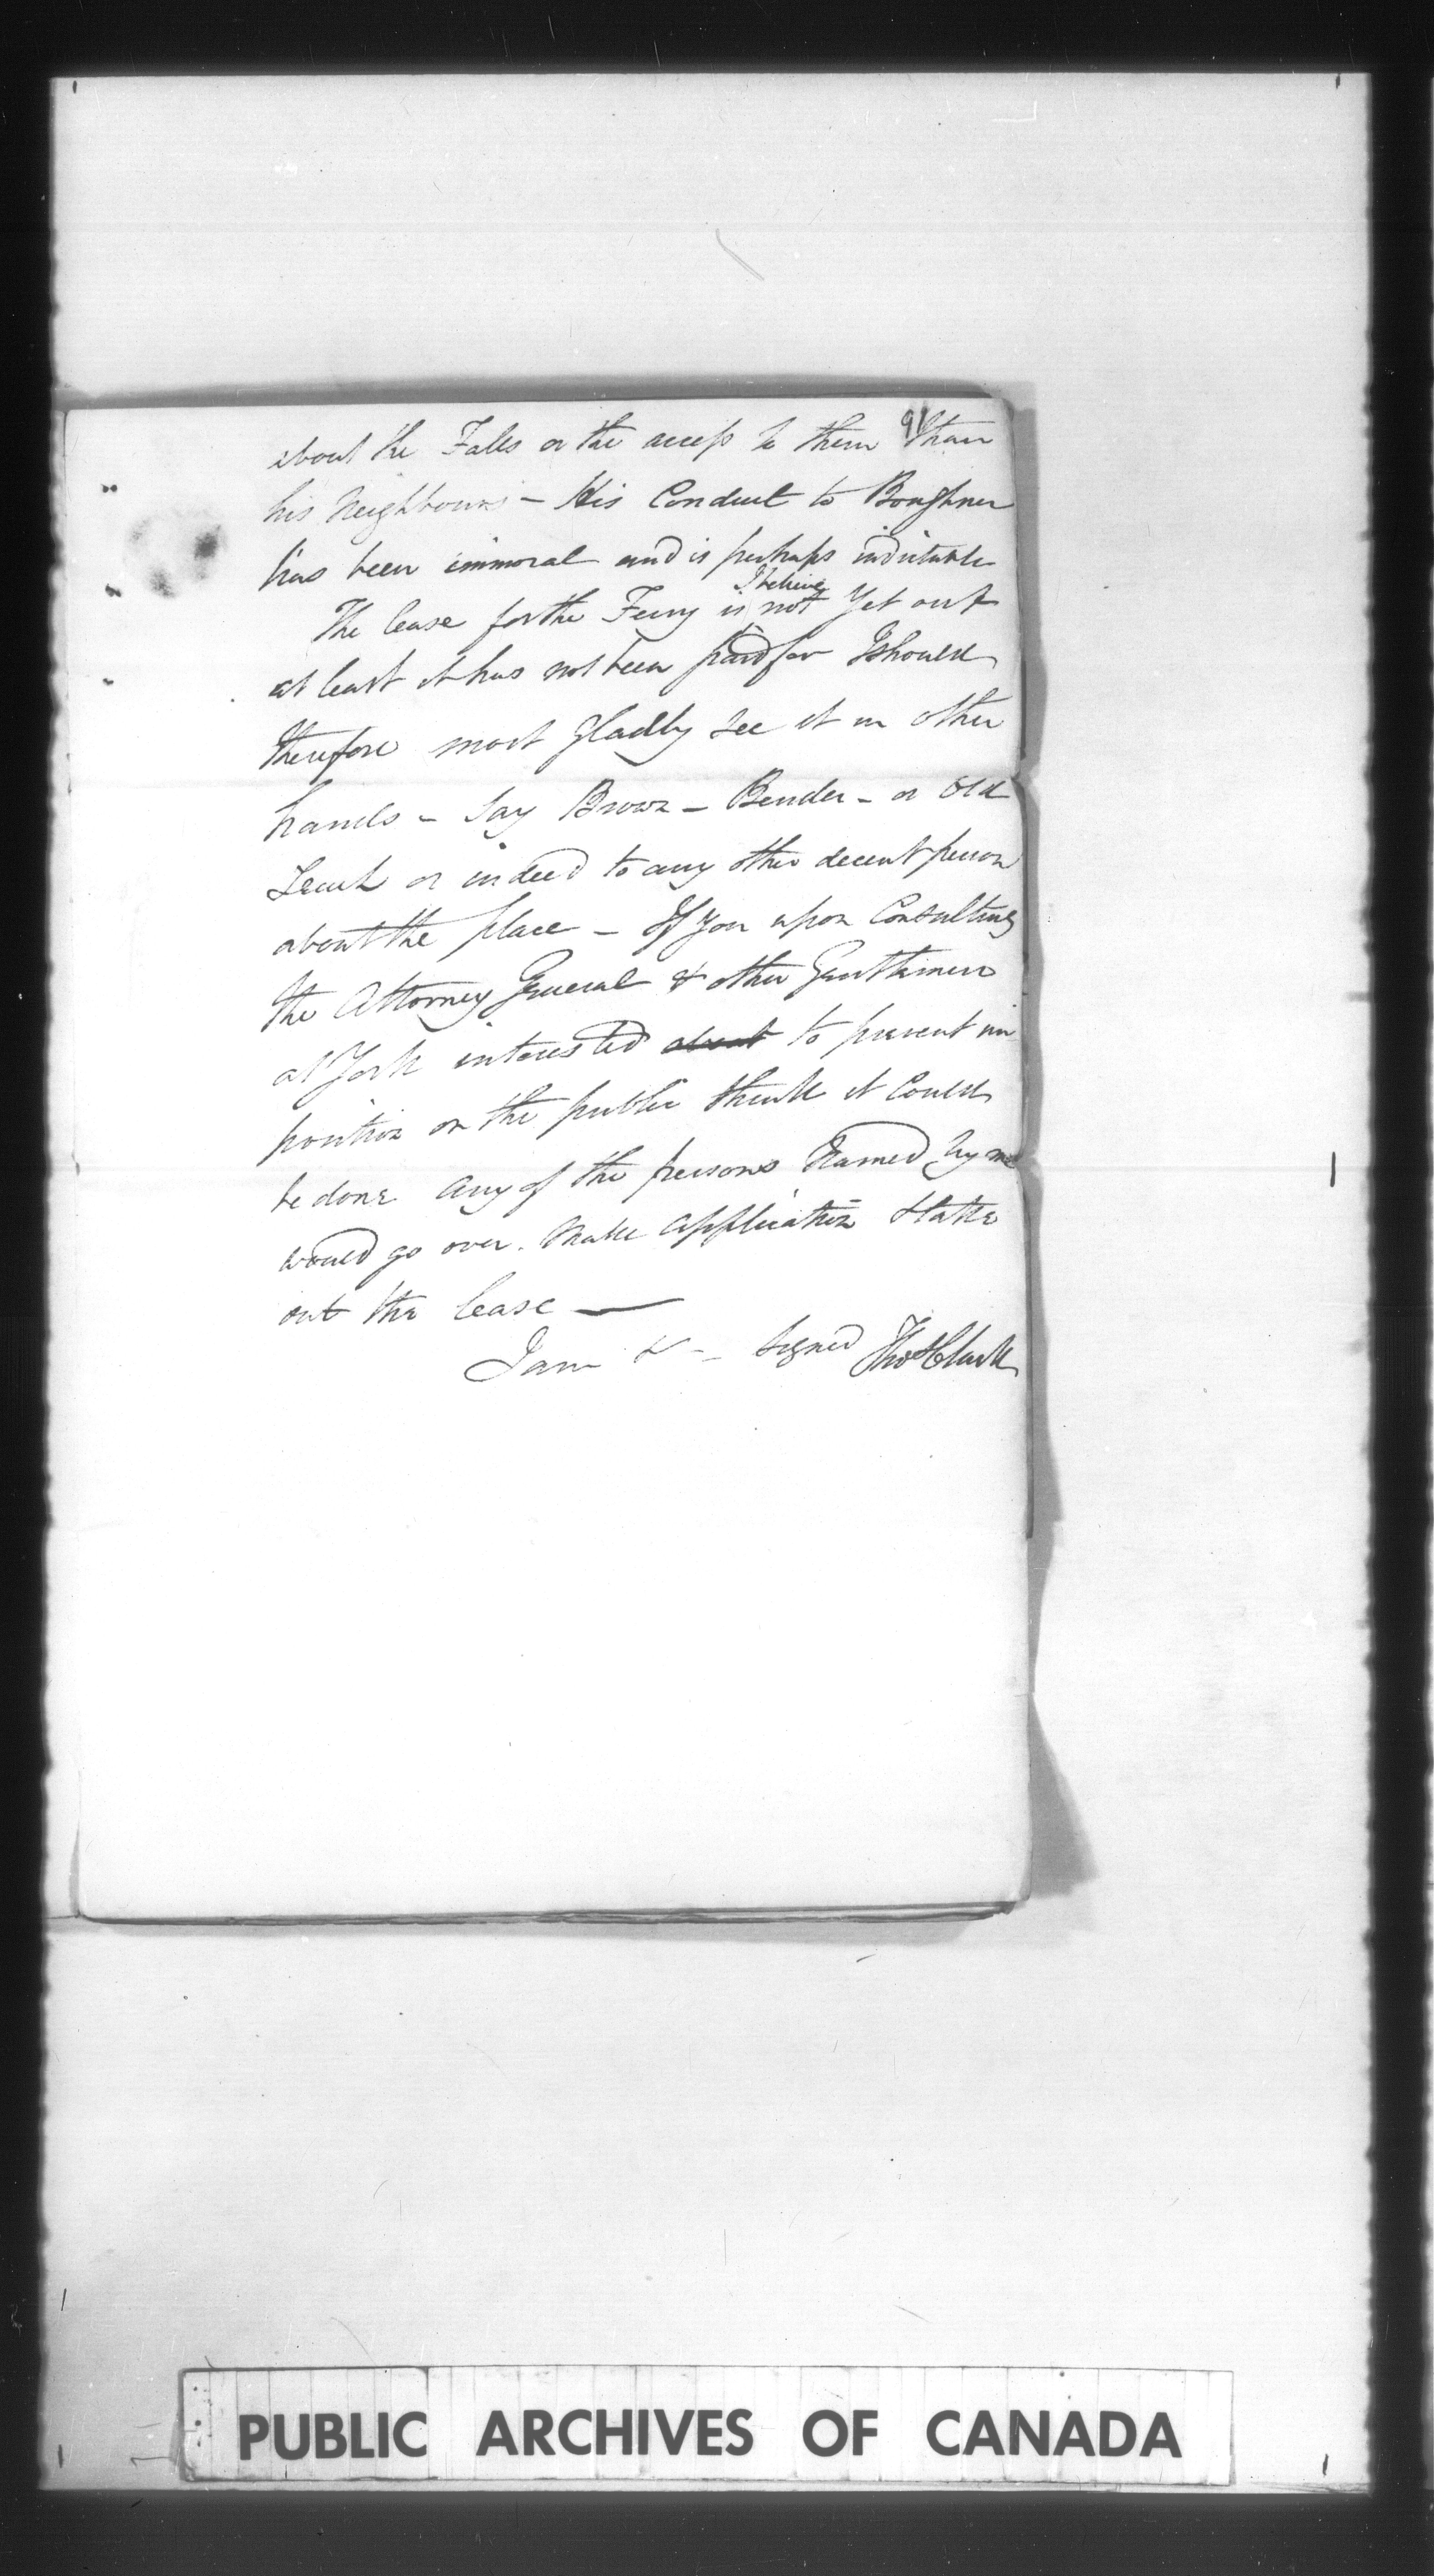 91
about the Falls or the access to them than
his Neighbours - His Conduct to Boughner
has been immoral and is perhaps indictable
I believe
The lease for the Ferry is not Yet out
at least it has not been paid for I should
therefore most gladly see it in other
hands - Say Brown - Bender - or Old
or indeed to any other decent person
about the place - If you upon Consulting
the Attorney General & other Gentlemen
at York interested about to prevent im
position on the public think it Could
be done any of the persons Named by me
would go over. Make application & take
out the lease —
I am & - Signed Thos Clark
PUBLIC ARCHIVES OF CANADA